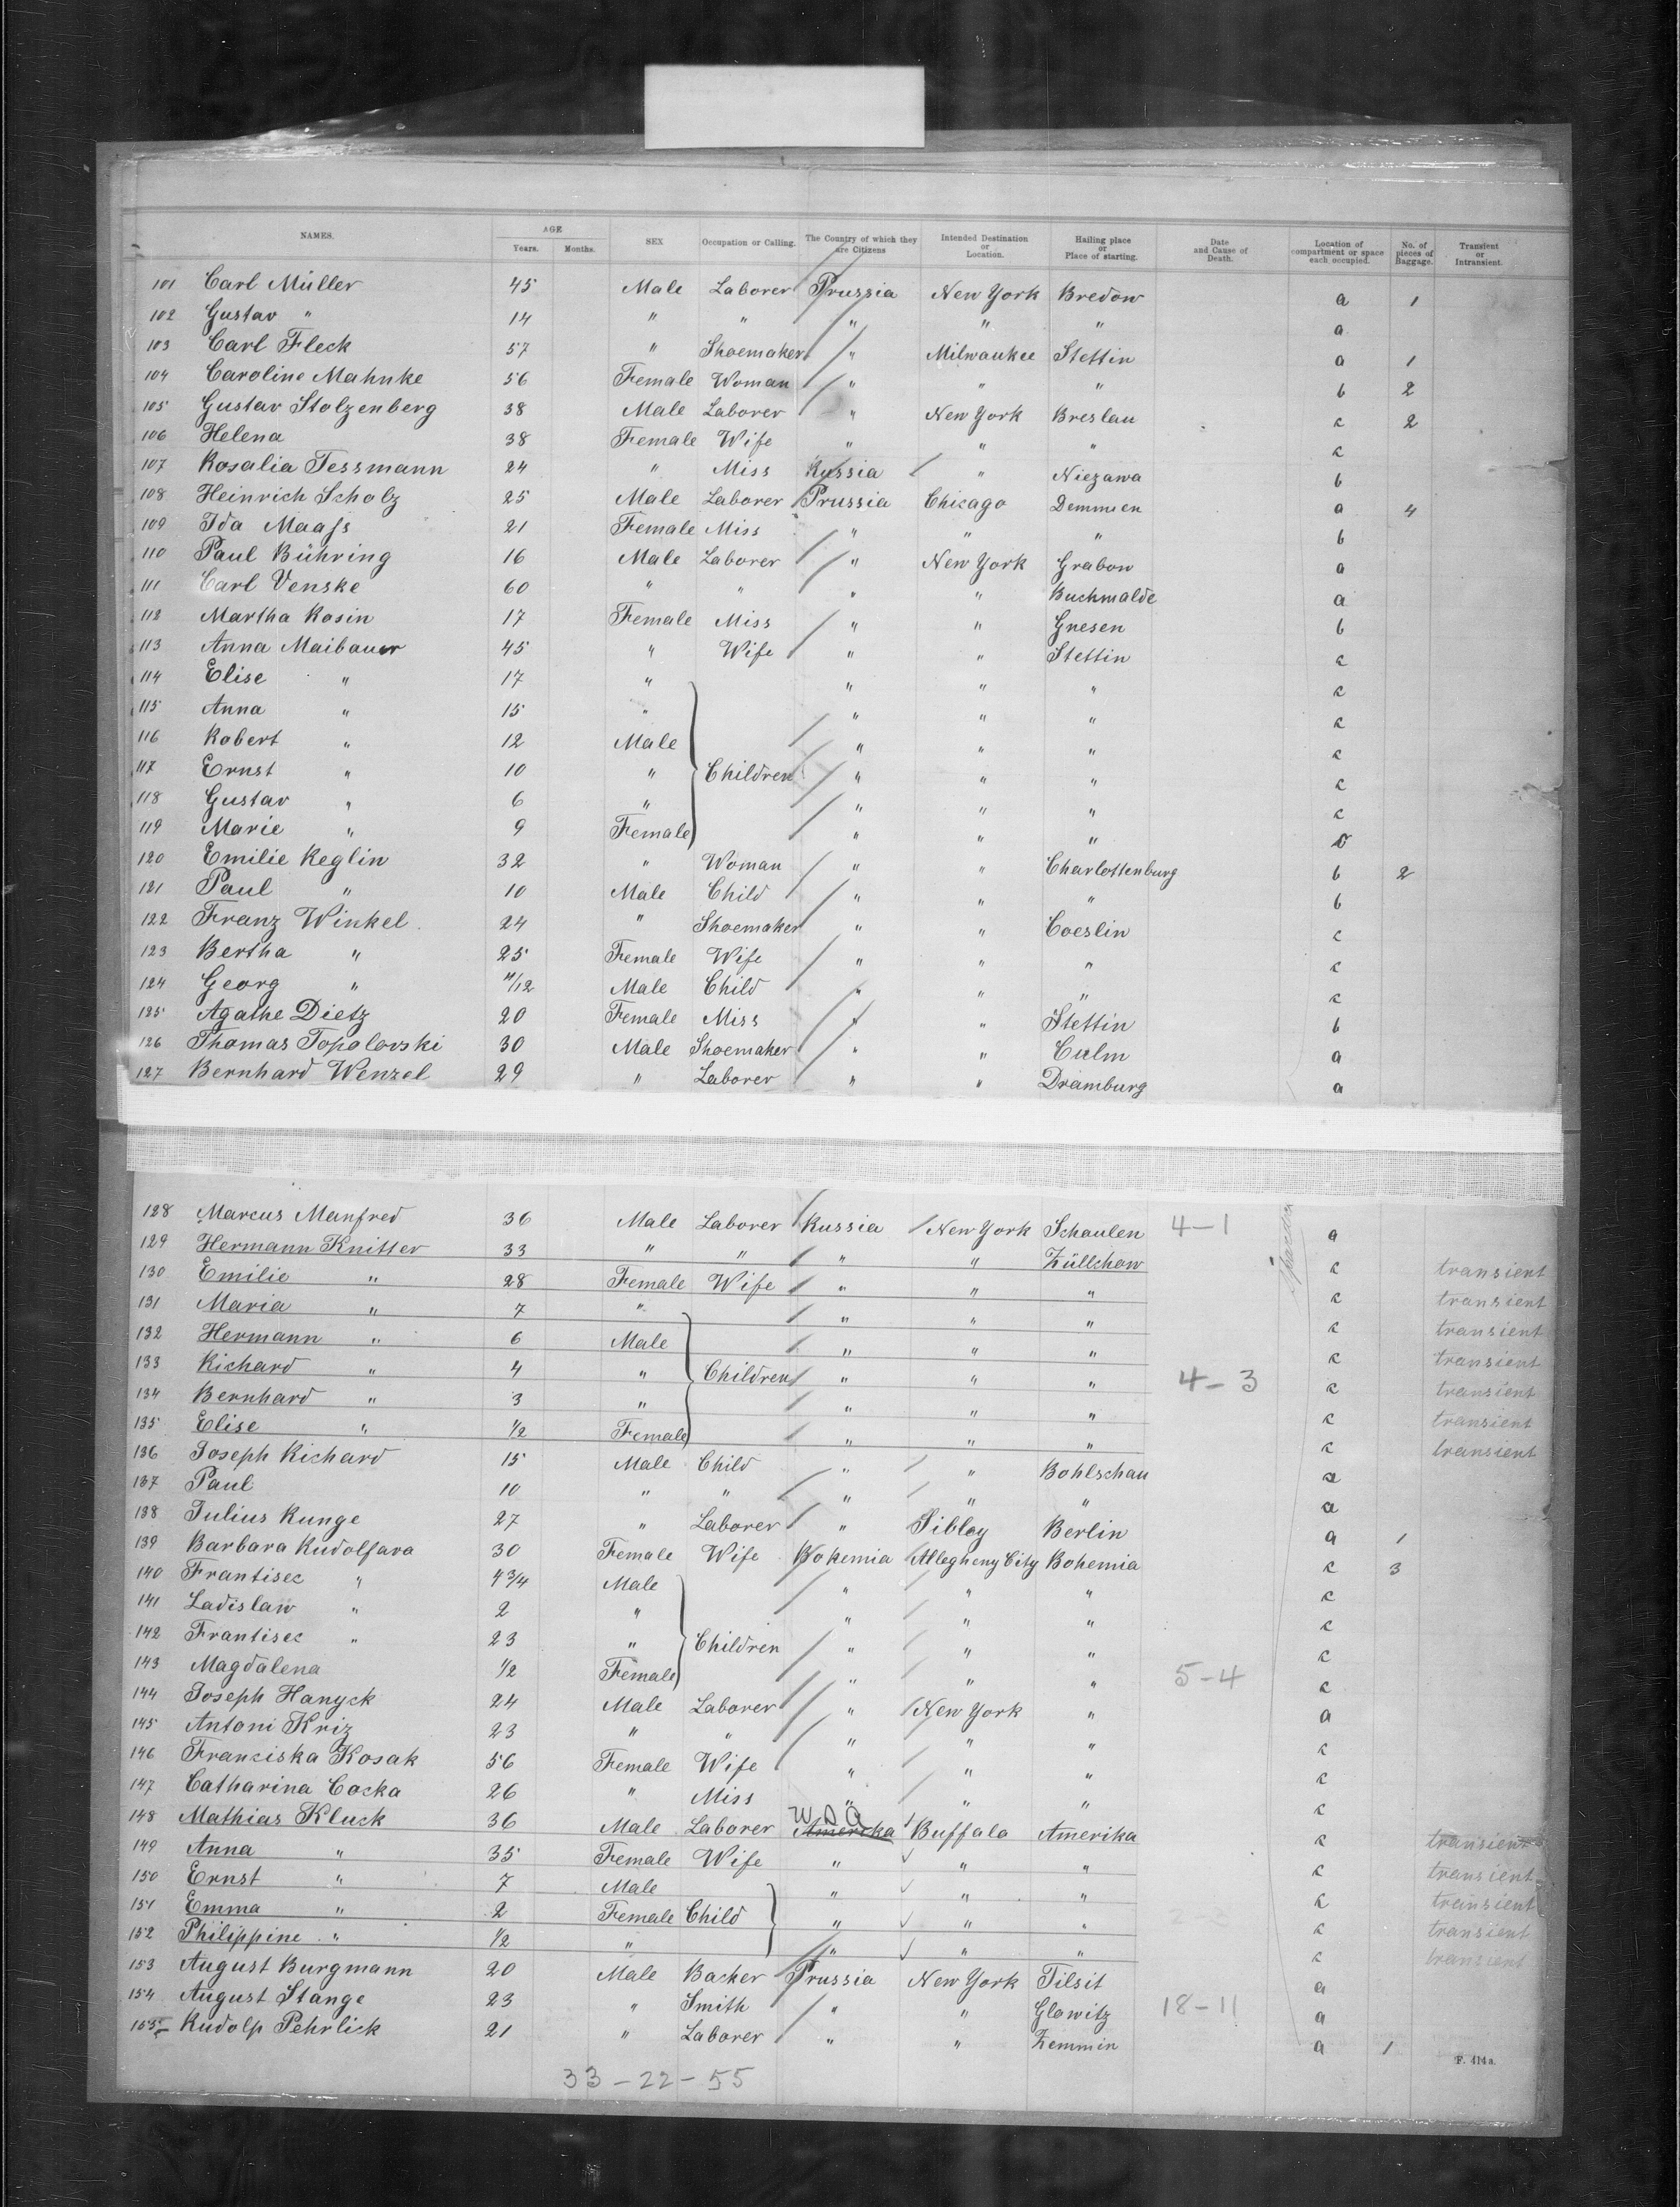 NAMES. AGE Years. Months. SEX Occupation or Calling. The Country of which they are Citizens Intended Destination or Location. Hailing place or Place of starting. Date and Cause of Death. Location of compartment or space each occupied. No. of pieces of Baggage. Transient or Intransient.
101 Carl Müller 45 Male Laborer Prussia New York Bredow a 1
102 Gustav " 14 " " " " " a
103 Carl Fleck 57 " Shoemaker " Milwaukee Stettin a 1
104 Caroline Mahnke 56 Female Woman " " " b 2
105 Gustav Stolzenberg 38 Male Laborer " New York Breslau c 2
106 Helena 38 Female Wife " " " c
107 Rosalia Tessmann 24 " Miss Russia " Niezawa b
108 Heinrich Scholz 25 Male Laborer Prussia Chicago Demmien a 4
109 Ida Maass 21 Female Miss " " " b
110 Paul Bühring 16 Male Laborer " New York Grabow a
111 Carl Venske 60 " " " " Buchwalde a
112 Martha Rosin 17 Female Miss " " Gnesen b
113 Anna Maibauer 45 " Wife " " Stettin c
114 Elise " 17 " " " " c
115 Anna " 15 " " " " c
116 Robert " 12 Male " " " c
117 Ernst " 10 " Children " " " c
118 Gustav " 6 " " " " c
119 Marie " 9 Female " " "
120 Emilie Reglin 32 " Woman " " Charlottenburg b 2
121 Paul " 10 Male Child " " " b
122 Franz Winkel 24 " Shoemaker " " Coeslin c
123 Bertha " 25 Female Wife " " " c
124 Georg " 11/12 Male Child " " " c
125 Agathe Dietz 20 Female Miss " " Stettin b
126 Thomas Topolovski 30 Male Shoemaker " " Culm a
127 Bernhard Wenzel 29 " Laborer " " Dramburg a
128 Marcus Manfred 36 Male Laborer Russia New York Schaulen 4-1 a
129 Hermann Knitter 33 " " " " Züllchow c transient
130 Emilie " 28 Female Wife " " " c transient
131 Maria " 7 " " " " c transient
132 Hermann " 6 Male " " " c transient
133 Richard " 4 " Children " " " 4-3 c transient
134 Bernhard " 3 " " " " c transient
135 Elise " 1/2 Female " " " c transient
136 Joseph Richard 15 Male Child " " Bohlschau a
137 Paul 10 " " " " " a
138 Julius Runge 27 " Laborer " Sibley Berlin a 1
139 Barbara Rudolfava 30 Female Wife Bohemia Allegheny City Bohemia c 3
140 Frantisec " 4 3/4 Male " " " c
141 Ladislaw " 2 " " " " c
142 Frantisec " 23 " Children " " " c
143 Magdalena 1/2 Female " " " 5-4 c
144 Joseph Hanyck 24 Male Laborer " New York " a
145 Antoni Kriz 23 " " " " " c
146 Franciska Kosak 56 Female Wife " " " c
147 Catharina Cocka 26 " Miss " " " c
148 Mathias Kluck 36 Male Laborer Amerika Buffalo Amerika c transient
149 Anna " 35 Female Wife " " " c transient
150 Ernst " 7 Male " " " c transient
151 Emma " 2 Female Child " " " c transient
152 Philippine " 1/2 " " " " c transient
153 August Burgmann 20 Male Backer Prussia New York Tilsit a
154 August Stange 23 " Smith " " Glowitz 18-11 a
155 Rudolp Pehrlick 21 " Laborer " " Zemmin a 1
F. 414a.
33-22-55